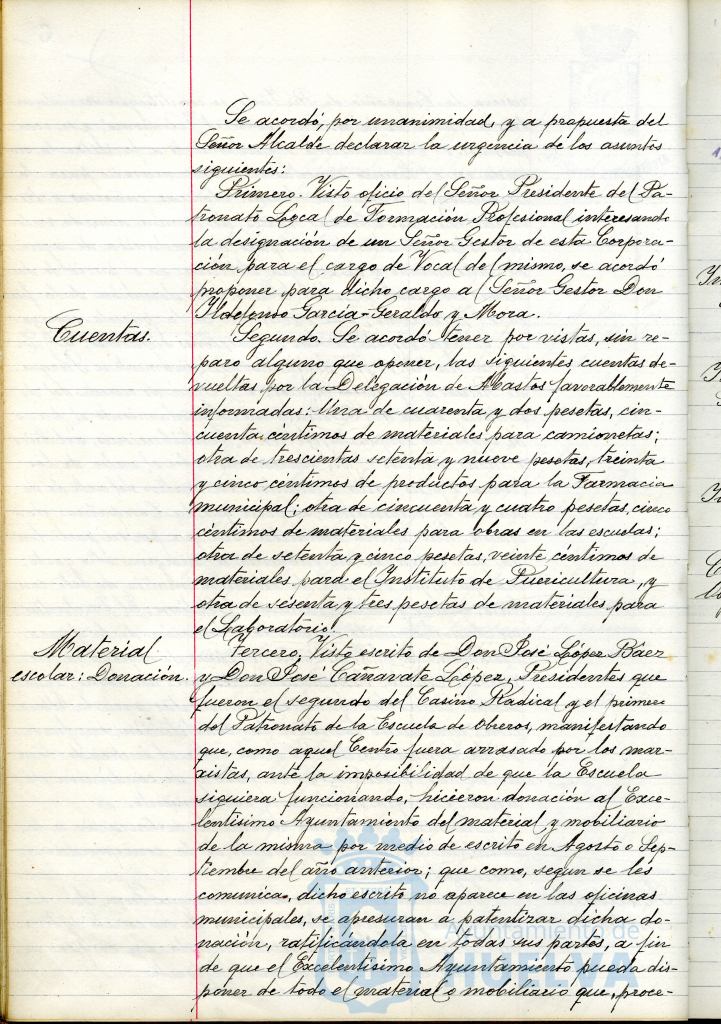 Se acordó, por unanimidad, y a propuesta del
Señor Alcalde declarar la urgencia de los asuntos
siguientes:
Primero. Visto oficio del Señor Presidente del Pa-
tronato Local de Formación Profesional interesando
la designación de un Señor Gestor de esta Corpora-
ción para el cargo de Vocal del mismo, se acordó
proponer para dicho cargo al Señor Gestor Don
Ildefonso García-Geraldo y Mora.
Cuentas.
Segundo. Se acordó tener por vistas, sin re-
paro alguno que oponer, las siguientes cuentas de-
vueltas por la Delegación de Abastos favorablemente
informadas: Una de cuarenta y dos pesetas, cin-
cuenta céntimos de materiales para camionetas;
otra de trescientas setenta y nueve pesetas, treinta
y cinco céntimos de productos para la Farmacia
municipal; otra de cincuenta y cuatro pesetas, cinco
céntimos de materiales para obras en las escuelas;
otra de setenta y cinco pesetas, veinte céntimos de
materiales para el Instituto de Puericultura, y
otra de sesenta y tres pesetas de materiales para
el Laboratorio.
Material
escolar: Donación.
Tercero. Visto escrito de Don José López Báer
y Don José Cañavate López, Presidentes que
fueron el segundo del Casino Radical y el primero
del Patronato de la Escuela de Obreros, manifestando
que, como aquel Centro fuera arrasado por los mar-
xistas, ante la imposibilidad de que la Escuela
siguiera funcionando, hicieron donación al Exce-
lentísimo Ayuntamiento del material y mobiliario
de la misma por medio de escrito en Agosto o Sep-
tiembre del año anterior; que como, segun se les
comunica, dicho escrito no aparece en las oficinas
municipales, se apresuran a patentizar dicha do-
nación, ratificándola en todas sus partes, a fin
de que el Excelentísimo Ayuntamiento pueda dis-
poner de todo el material o mobiliario que, proce-
Ayuntamiento de
HUELVA